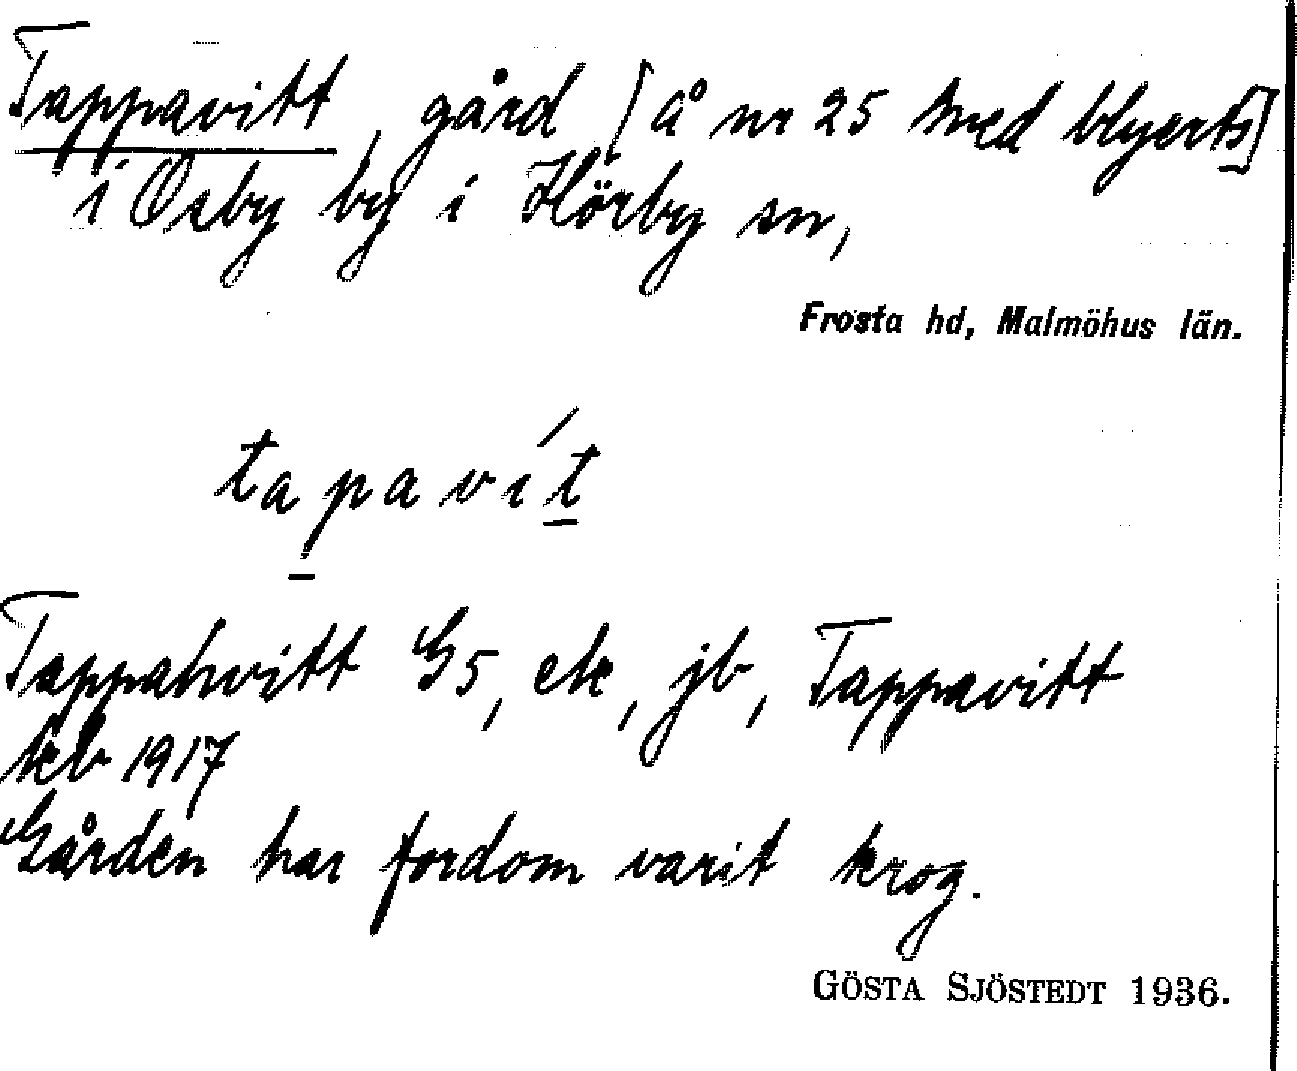 Tappavitt, gård [å nr 25 med blyerts]
i Osby by i Hörby sn,
Frosta hd, Malmöhus län.
ta p̲a v i t̲́
Tappahvitt G5, ek, jb, Tappavitt
kb 1917
Gården har fordom varit krog.
GÖSTA SJÖSTEDT 1936.